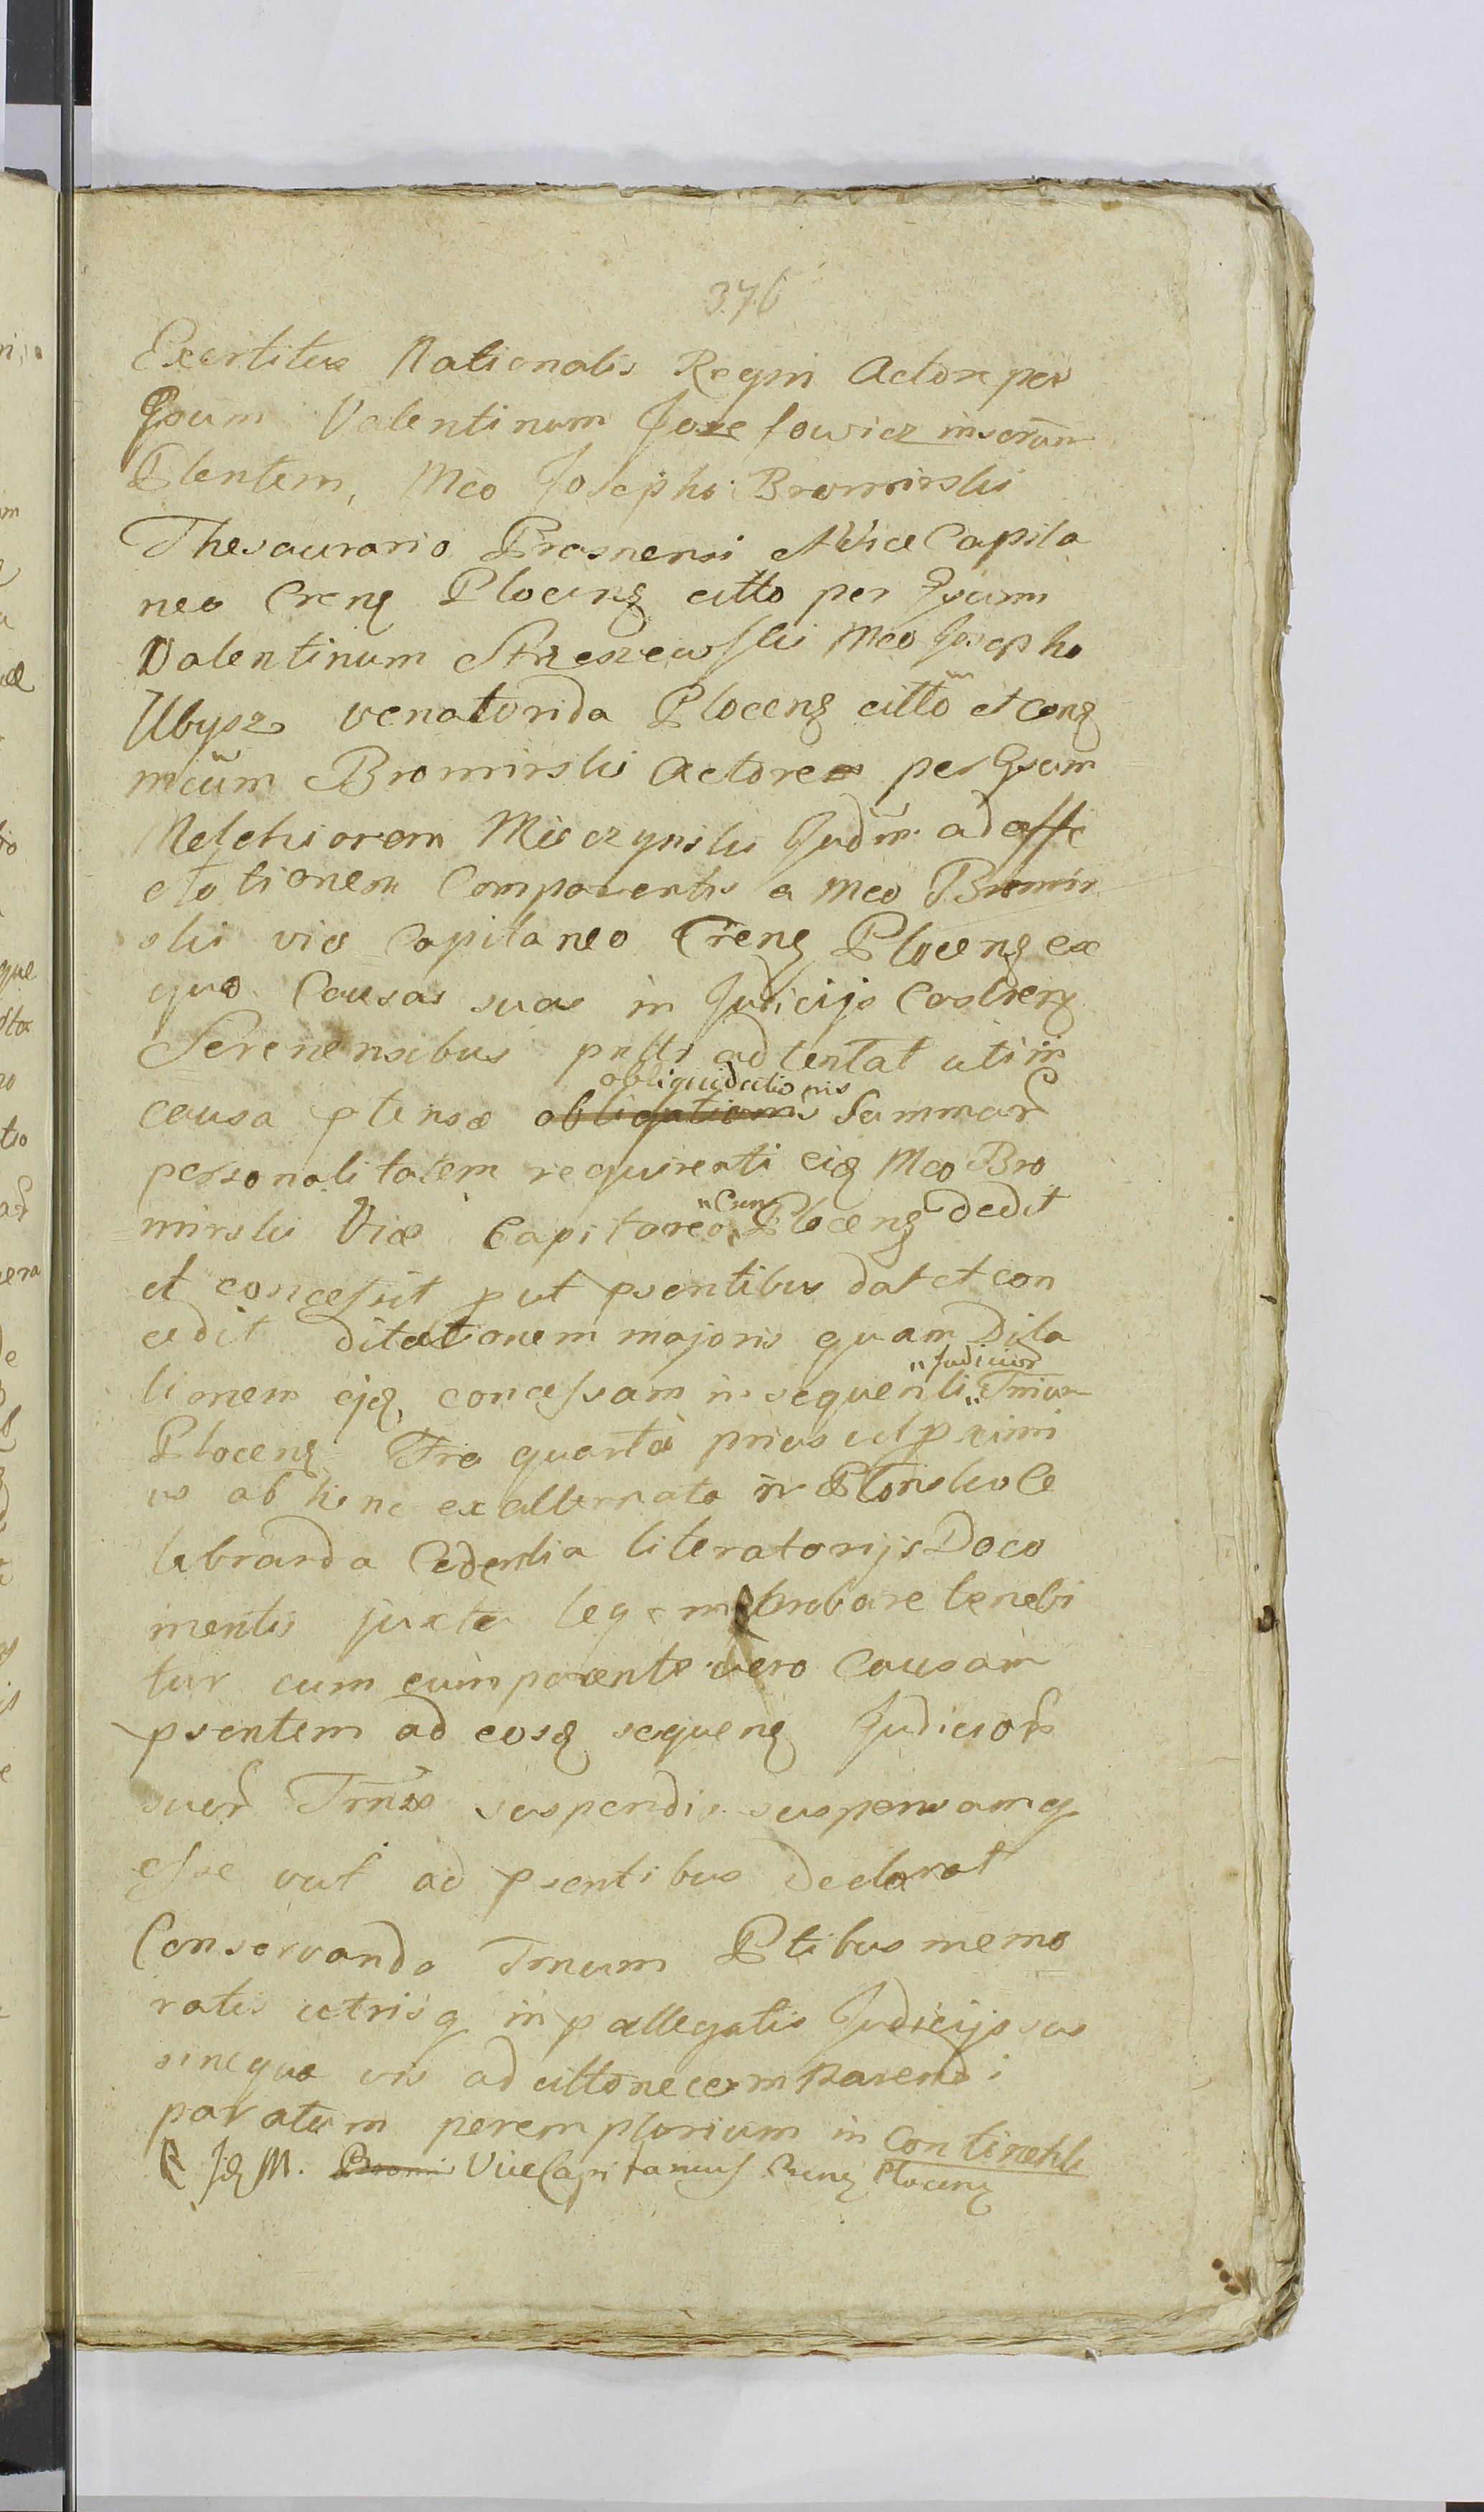 376
Exercitus Nationalis Regni Actore per
Gsum Valentinum Jozefowicz inscrum
Plentem, Mco Josepho Bromirski
Thesaurario Prasnensi et Vice Capita
neo Crenȝ Plocenȝ citto per Gsum
Valentinum Strzeszewski Mco Josepho
Ubysz venatorida Plocenȝ citto et conȝ
mcum Bromirski Actorem per Gsum
Melchiorem Mieczynski Judm ad affe
ctationem Comparentis a Mco Bromir
ski vice Capitaneo Crenȝ Plocenȝ ex
quo Causas suas in Judicijs Castrenȝ
Serenensibus pntti adtentat uti in
causa ptensæ obligationis obliquidationis Summar
personalitatem requirenti eiȝ Mco Bro
mirski Vice Capitaneo "Cren Plocenȝ dedit
et concessit put psentibus dat et con
cedit dilationem majoris quam Dila
tionem ejȝ concessam in sequenti "Judicior Tmium
Plocenȝ Fra quarta prius vel pximi
us ab hinc ex alternata in Plonsk Ce
lebranda Cedentia literatorijs Docu
mentis juxta legem probare tenebi
tur cum comparente vero Causam
psentem ad eosȝ sequenȝ Judicior
suor Tmos suspendit suspensamq
esse vult ad psentibus declarat
Conservando Tmum Ptibus memo
ratis utrisq in pallegatis Judicijs suis
sine quavis ad citone comparendi
paratum peremptorium in Continenti
Jȝ M. Bromi ViceCapitaneus Crenȝ Plocenȝ